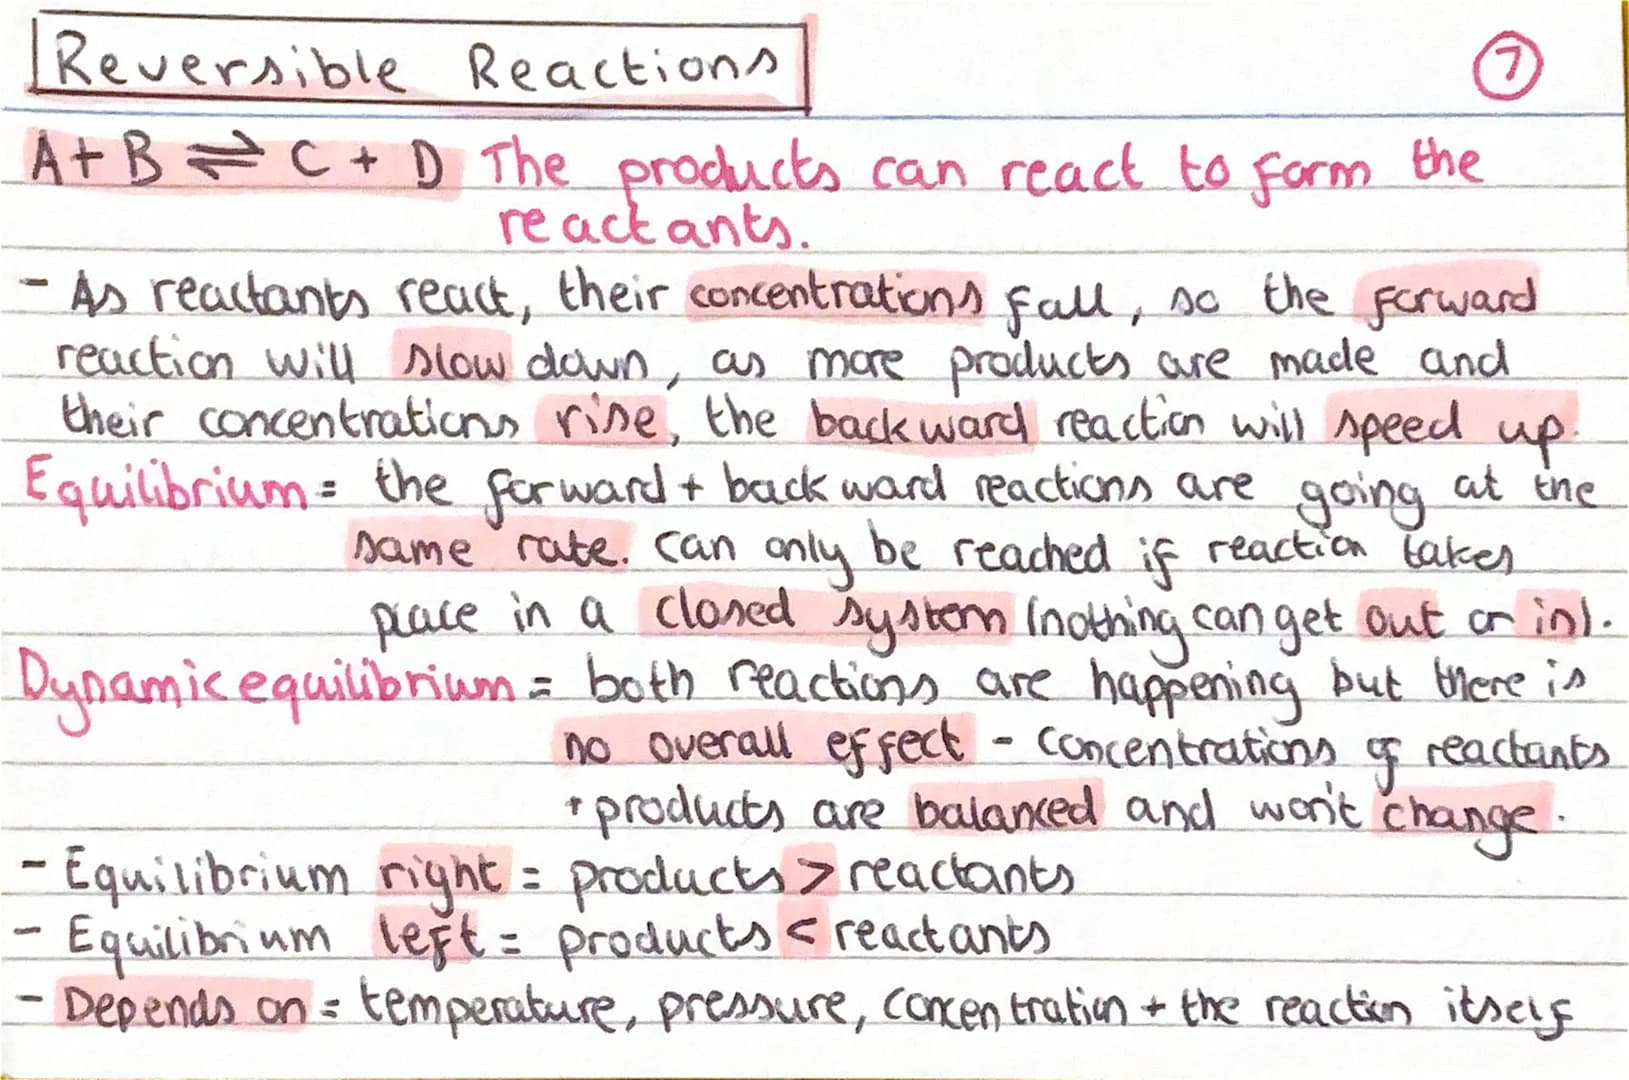 Reversible Reactions
7
A + B ⇌ C + D The products can react to form the
reactants.
- As reactants react, their concentrations fall, so the forward
reaction will slow down, as more products are made and
their concentrations rise, the backward reaction will speed up.
Equilibrium = the forward + backward reactions are going at the
same rate. Can only be reached if reaction takes
place in a closed system (nothing can get out or in).
Dynamic equilibrium = both reactions are happening but there is
no overall effect - concentrations of reactants
+ products are balanced and won't change.
- Equilibrium right = products > reactants
- Equilibrium left = products < reactants
- Depends on = temperature, pressure, concentration + the reaction itself